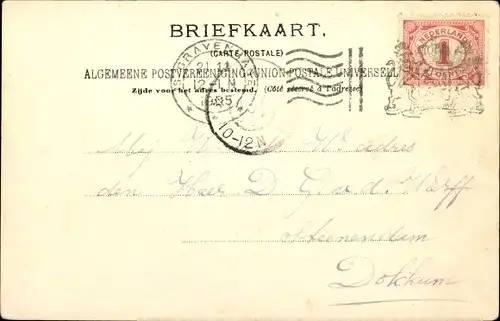 BRIEFKAART.
(CARTE POSTALE)
ALGEMEENE POSTVEREENIGING (UNION POSTALE UNIVERSELLE)
Zijde voor het adres bestemd. (Côté réservé à l'adresse)
NEDERLAND
1
CENT
'S GRAVENHAGE
12-1 N
10-12N
Mej W. adres
den Heer D G. v d. Werff
Dokkum